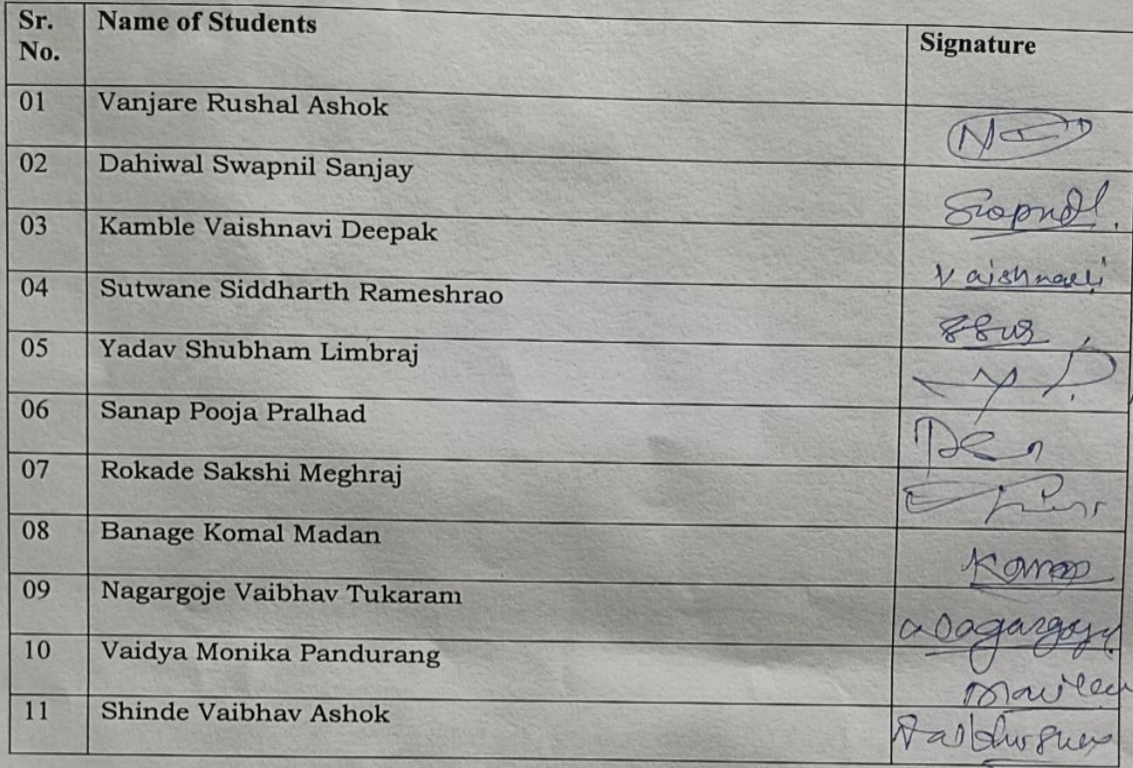 Sr. No. Name of Students Signature
01 Vanjare Rushal Ashok
02 Dahiwal Swapnil Sanjay Swapnil
03 Kamble Vaishnavi Deepak Vaishnavi
04 Sutwane Siddharth Rameshrao
05 Yadav Shubham Limbraj
06 Sanap Pooja Pralhad
07 Rokade Sakshi Meghraj
08 Banage Komal Madan
09 Nagargoje Vaibhav Tukaram
10 Vaidya Monika Pandurang
11 Shinde Vaibhav Ashok